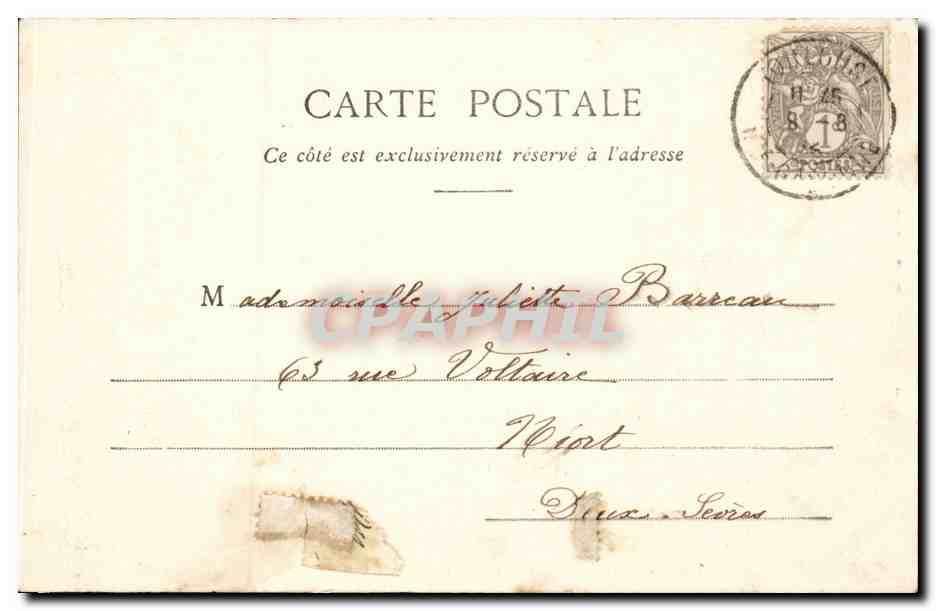 CARTE POSTALE
Ce côté est exclusivement réservé à l'adresse
TOULOUSE
8 - 8
1
POSTES
Mademoiselle Juliette Barreau
CPAPHIL
63 rue Voltaire
Niort
Deux-Sèvres